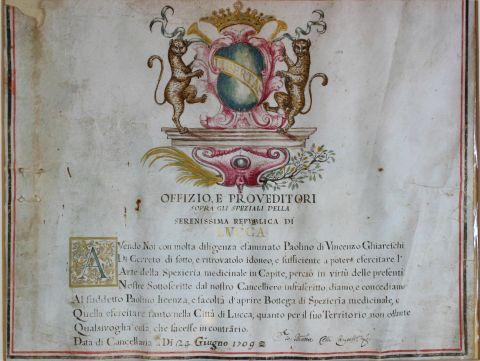 LIBERTAS
OFFIZIO, E PROVEDITORI
SOPRA GLI SPEZIALI DELLA
SERENISSIMA REPUBLICA DI
LUCCA
AVendo Noi con molta diligenza esaminato Paolino di Vincenzo Ghiareschi
Di Cerreto di sotto, e ritrovatolo idoneo, e sufficiente a poter esercitare l'
Arte della Spezieria medicinale in Capite, perciò in virtù delle presenti
Nostre Sottoscritte dal nostro Cancelliero infrascritto, diamo, e concediamo
Al suddetto Paolino licenza, e facoltà d'aprire Bottega di Spezieria medicinale, e
Quella esercitare tanto nella Città di Lucca, quanto per il suo Territorio non ostante
Qualsivoglia cosa, che facesse in contrario.
Data di Cancellaria Di 24 Giugno 1709